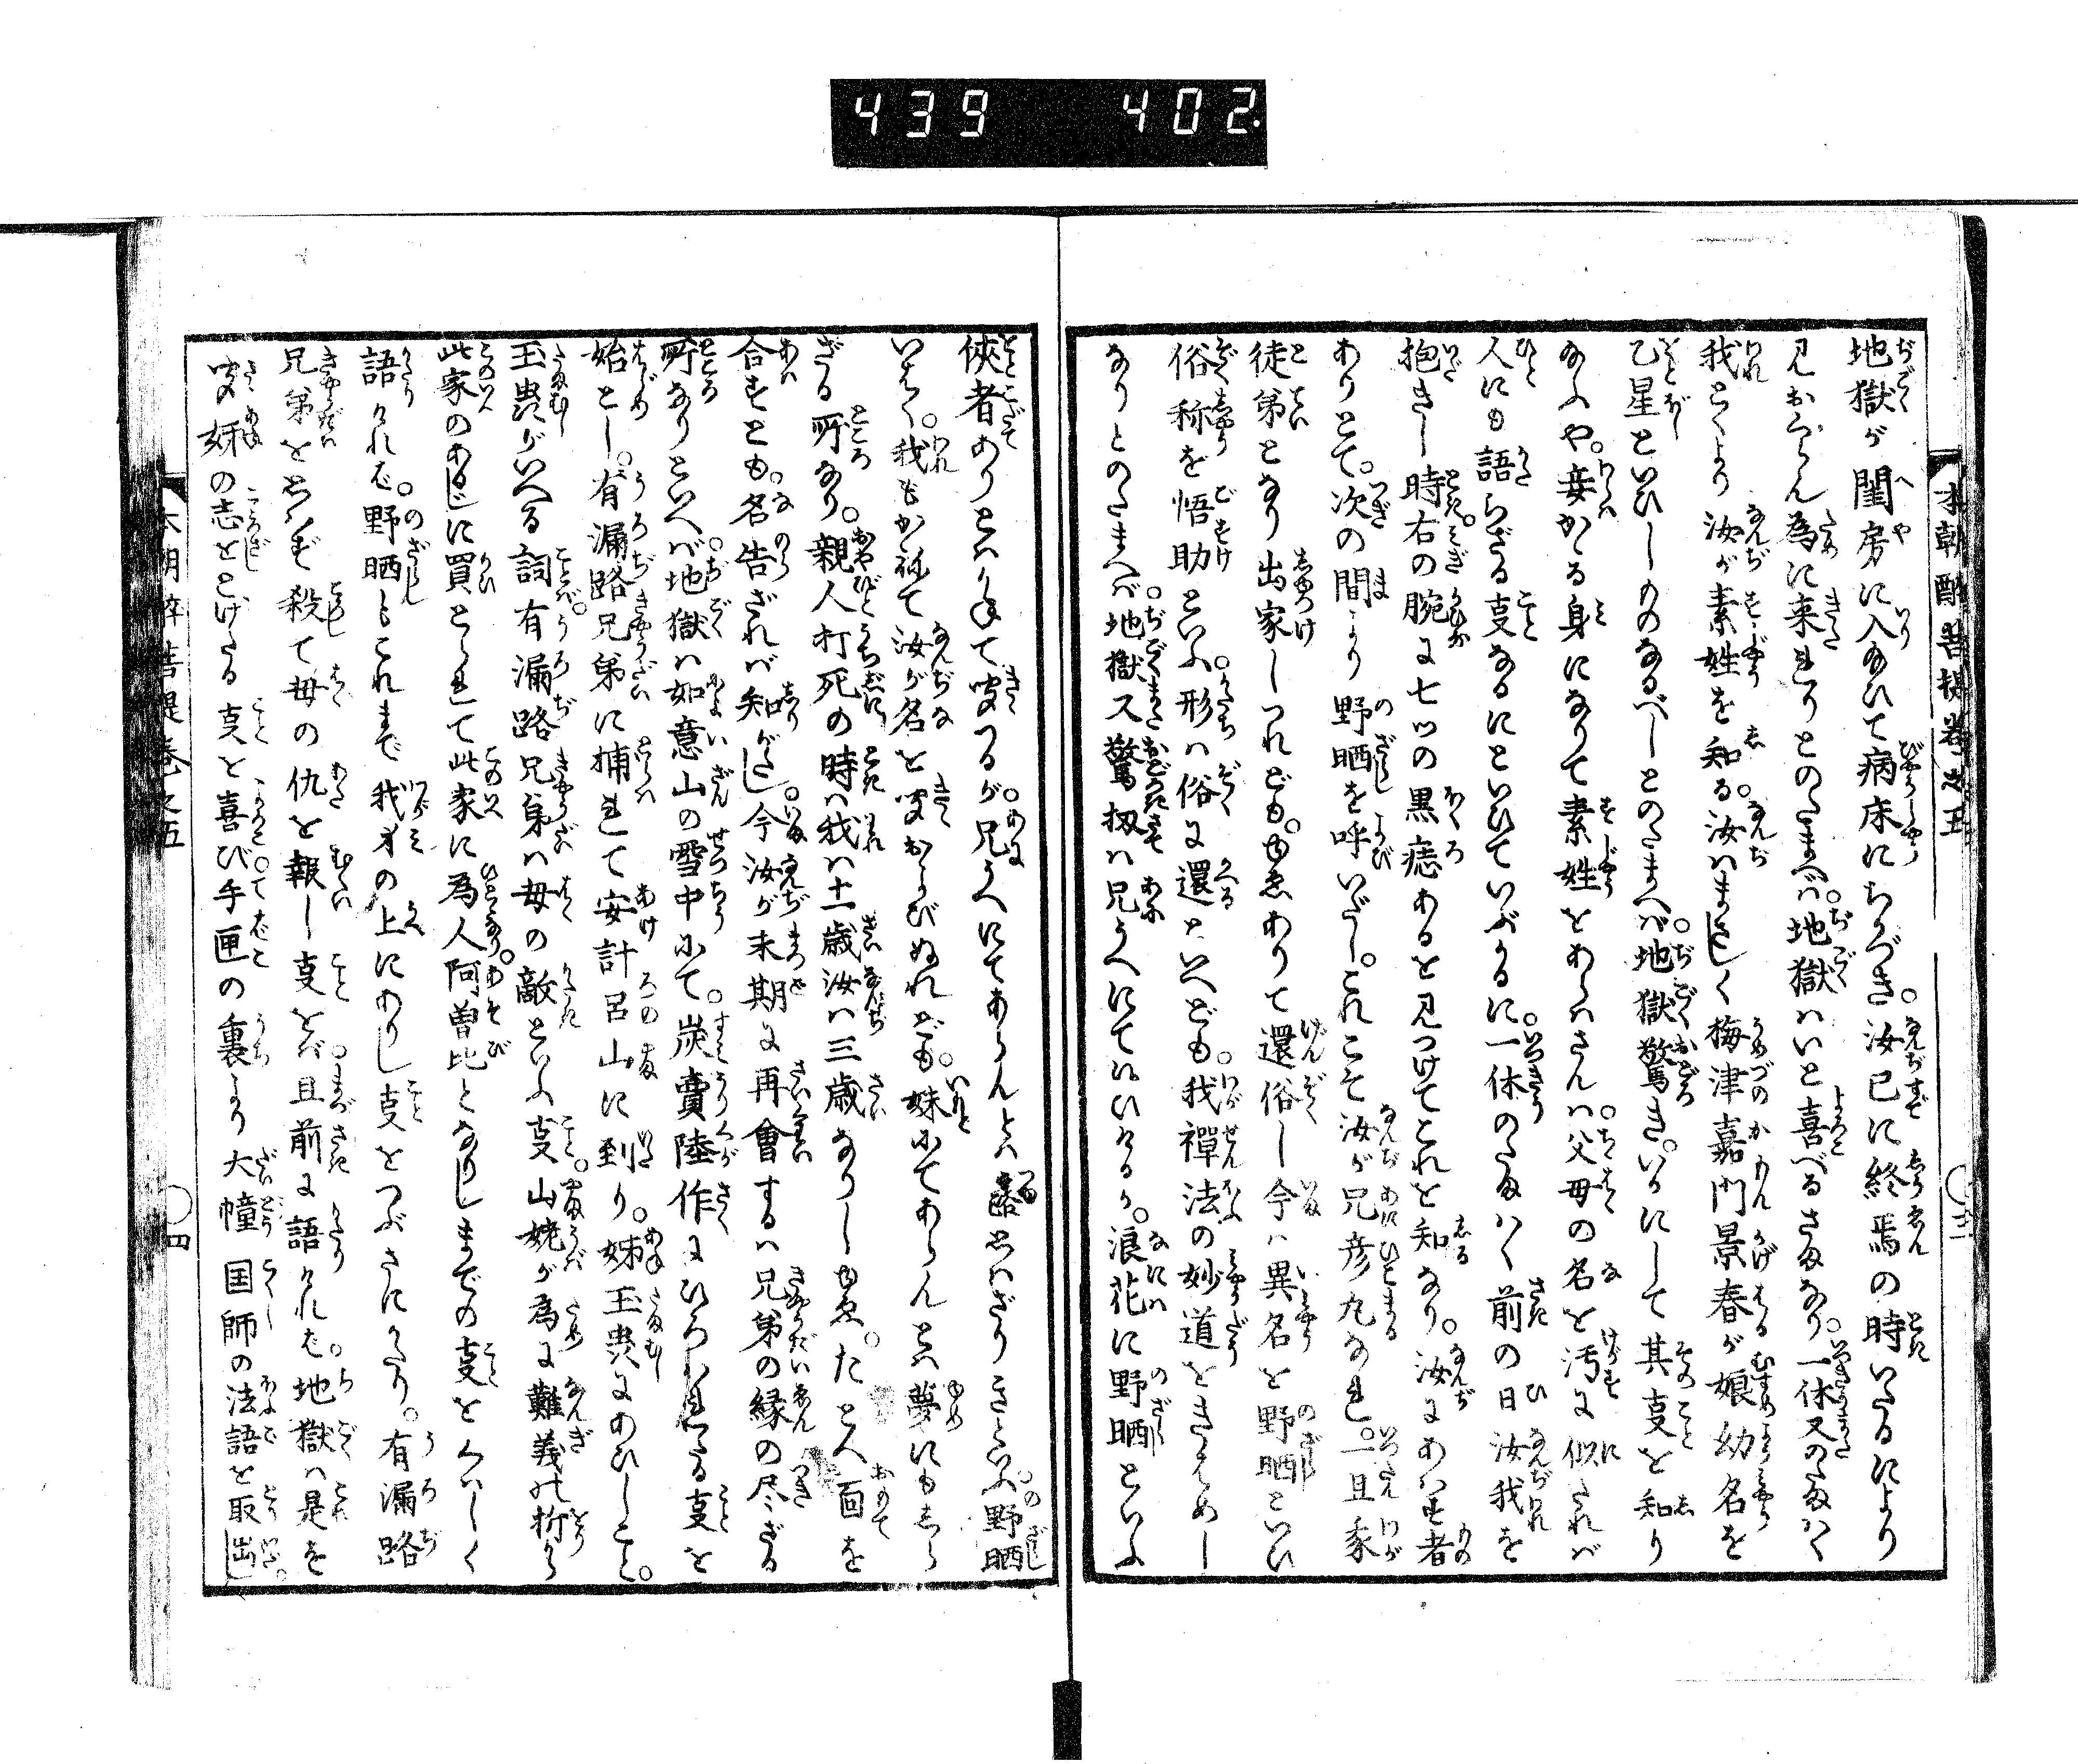 439 402
本朝酔菩提巻之五
地獄が閨房に入給ひて病床にちかづき。汝已に終焉の時いたるにより
見おくらん為に来れりとのたまへば。地獄はいと喜べるさまなり。一休又のたまはく
我とくより汝が素姓を知る。汝はまさしく梅津嘉門景春が娘幼名を
乙星といひしものなるべしとのたまへば。地獄驚き。いかにして其事を知り
給ふや。妾かゝる身になりて素姓をあらはさんは。父母の名を汚すに似たれば
人にも語らざる事なるにといひていぶかるに。一休のたまはく前の日汝我を
抱きし時。右の腕に七ツの黒痣あるを見つけてこれを知なり。汝にあはす者
ありとて。次の間より野晒を呼いだし。これこそ汝が兄彦九なれ。一旦我
徒弟となり出家しつれども。ゆゑありて還俗し今は異名を野晒といひ
俗称を悟助といふ。形は俗に還といへども。我禅法の妙道をきはめし
なりとのたまへば。地獄又驚扨は兄うへにてはひけるか。浪花に野晒といふ
侠者ありとはかねて聞つるが。兄うへにてあらんとは露思はざりきといふ。野晒
いはく。我もかねて汝が名を聞およびぬれども。妹にてあらんとは夢にもしら
ざる所なり。親人打死の時は我は十一歳汝は三歳なりしゆゑ。たとへ面を
合すとも。名告ざれば知がたし。今汝が末期に再会するは兄弟の縁の尽ざる
所なりといへば。地獄は如意山の雪中にて。炭売陸作にひろはれたる事を
始とし。有漏路兄弟に捕れて安計呂山に到り。姉玉虫にあひしこと。
玉虫がいへる詞有漏路兄弟は母の敵といふ事。山姥が為に難義の折から
此家のあるじに買とられて此家に為人阿曽比となりしまでの事をくはしく
語りければ。野晒もこれまで我身の上にありし事をつぶさにかたり。有漏路
兄弟を思はず殺て母の仇を報し事をば且前に語りければ。地獄は是を
聞姉の志をとげたる事を喜び手匣の裏より大幢国師の法語を取出し。
本朝酔菩提巻之五
〇四